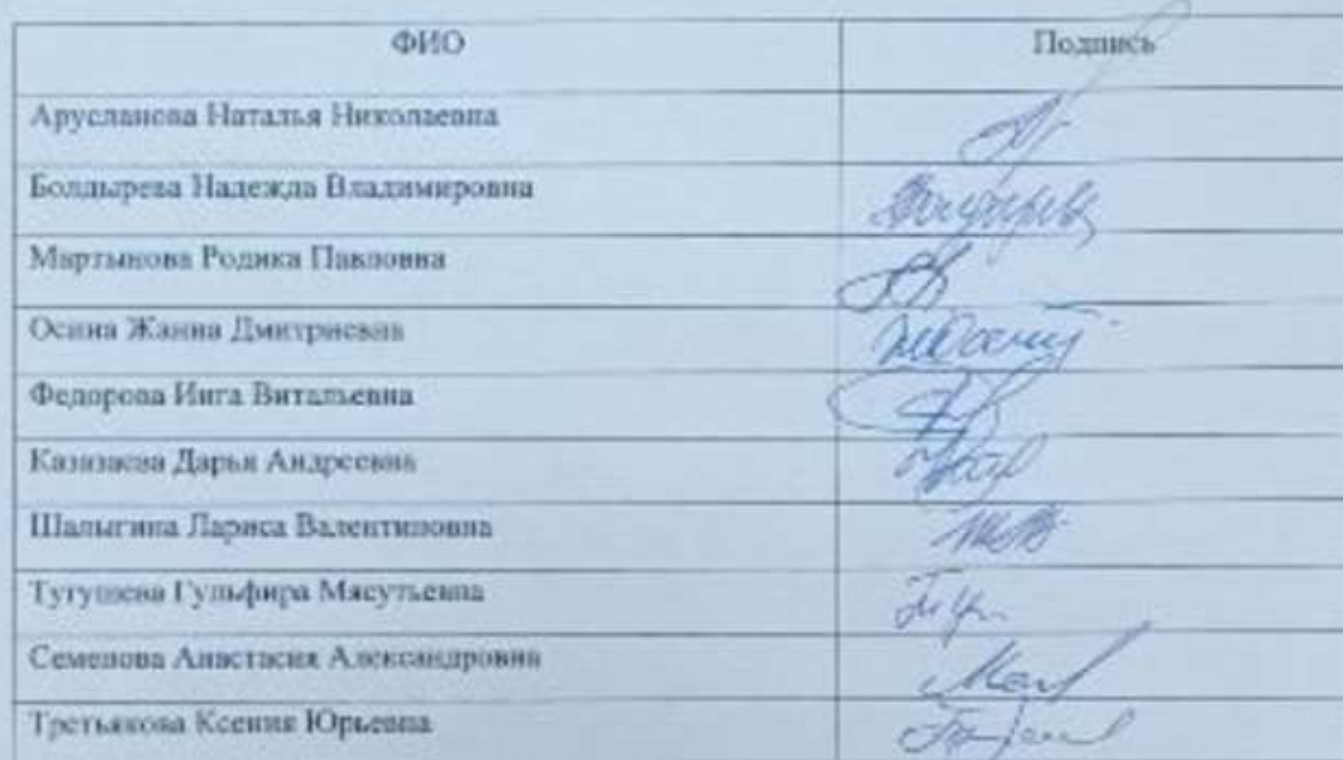 ФИО Подпись
Арусланова Наталья Николаевна
Болдырева Надежда Владимировна
Мартынова Родика Павловна
Осина Жанна Дмитриевна
Федорова Инга Витальевна
Дарья Андреевна
Шалыгина Лариса Валентиновна
Тугушева Гульфира Мясутьевна
Семенова Анастасия Александровна
Третьякова Ксения Юрьевна